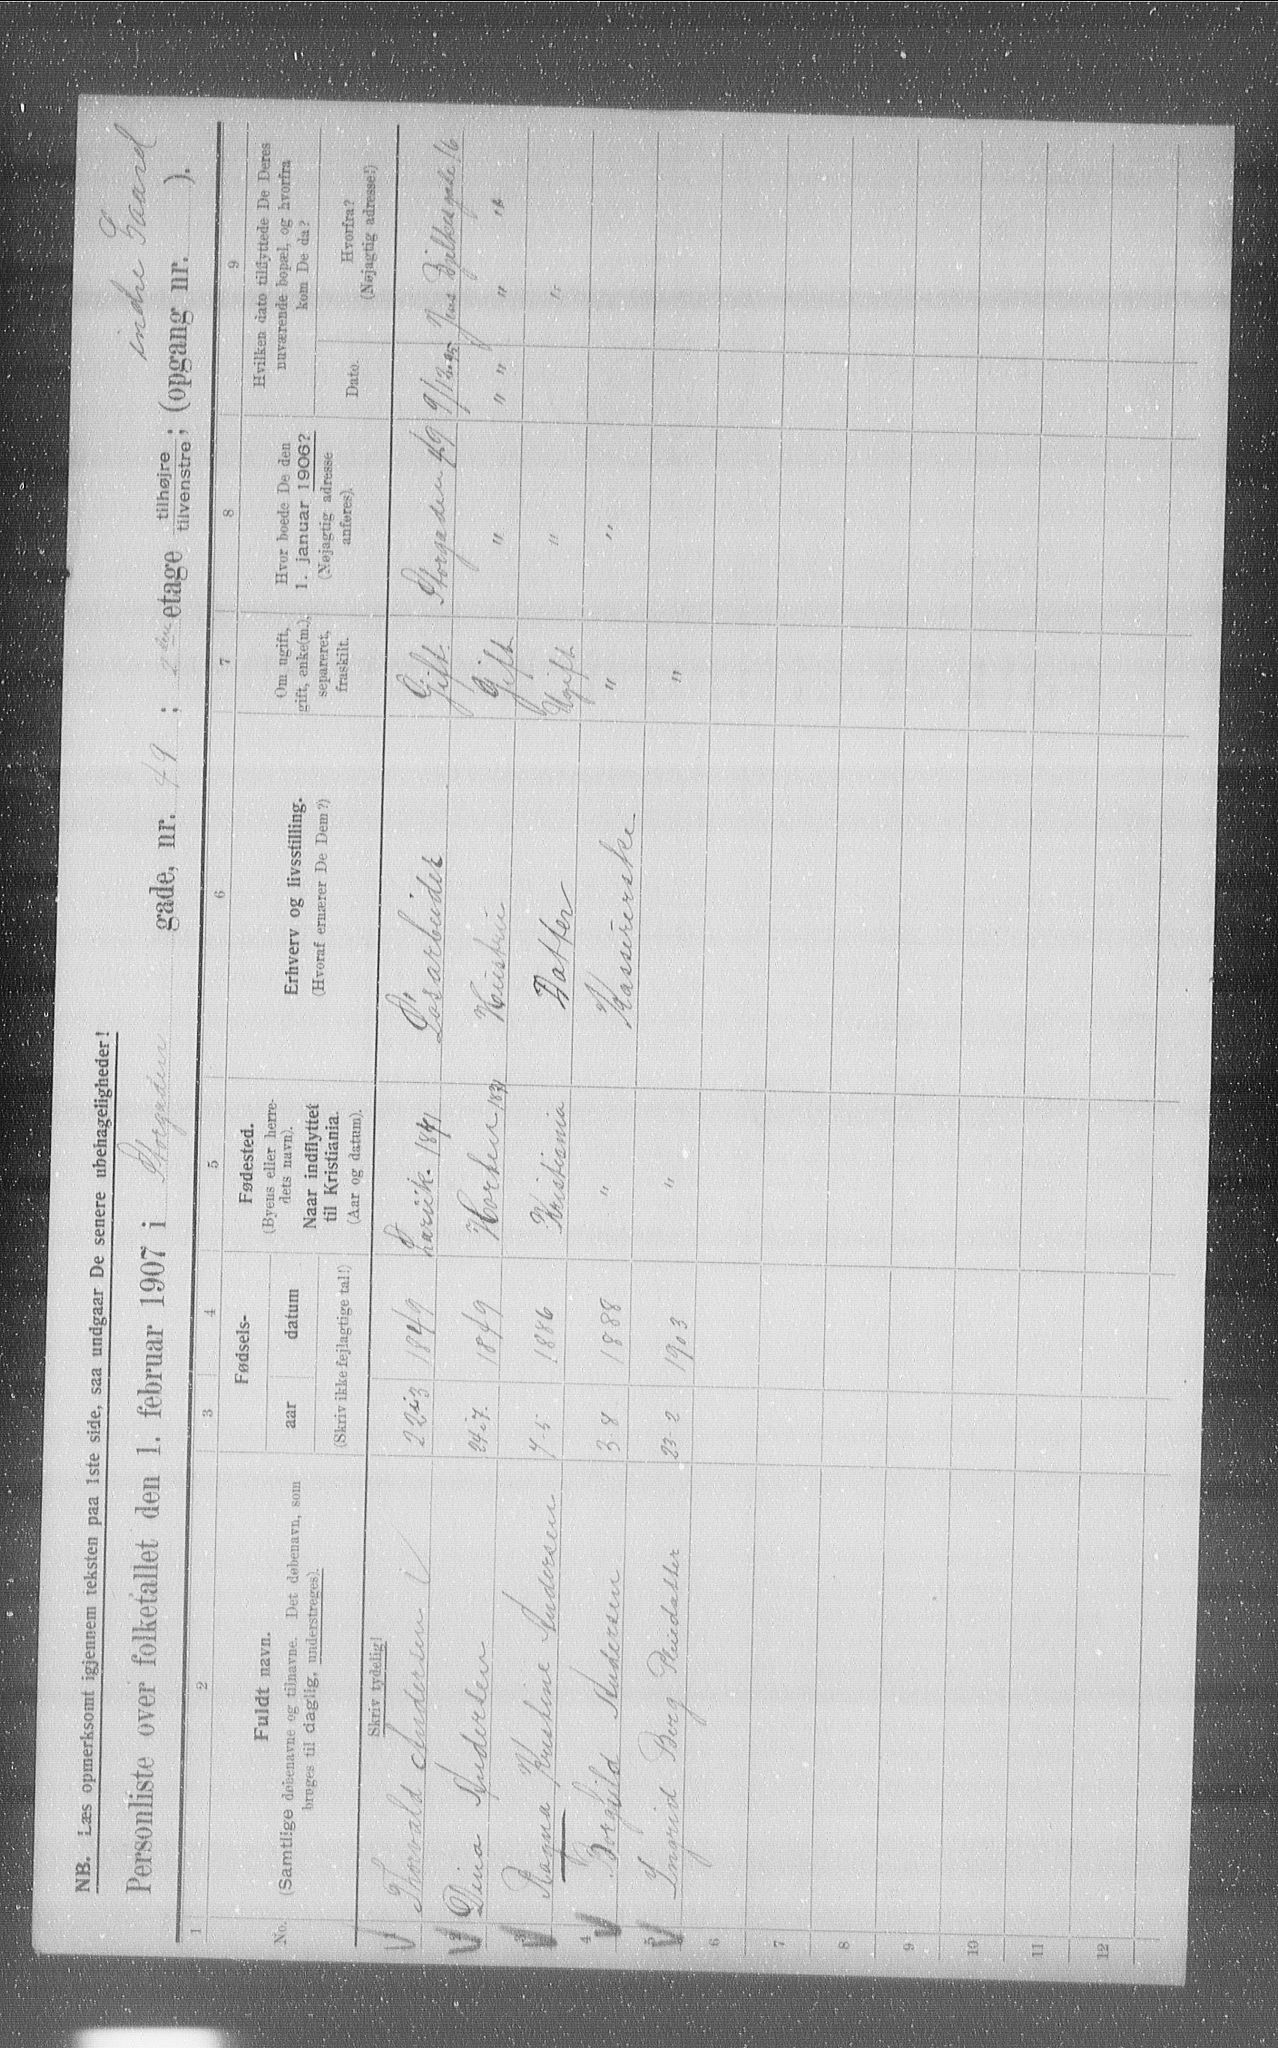 indre Gaard
NB. Læs opmerksomt igjennem teksten paa 1ste side, saa undgaar De senere ubehageligheder!
Personliste over folketallet den 1. februar 1907 i Storgaden gade, nr. 49; 2den etage tilhøjre / tilvenstre; (opgang nr. ).
1 2 3 4 5 6 7 8 9
No.
Fuldt navn.
(Samtlige døbenavne og tilnavne. Det døbenavn, som
bruges til daglig, understreges).
Fødsels-
aar datum
Fødested.
(Byens eller herre-
dets navn).
Naar indflyttet
til Kristiania.
(Aar og datum).
Erhverv og livsstilling.
(Hvoraf ernærer De Dem?)
Om ugift,
gift, enke(m.),
separeret,
fraskilt.
Hvor boede De den
1. januar 1906?
(Nøjagtig adresse
anføres).
Hvilken dato tilflyttede De Deres
nuværende bopæl, og hvorfra
kom De da?
Dato.
Hvorfra?
(Nøjagtig adresse!)
Skriv tydelig!
(Skriv ikke fejlagtige tal!)
1 Thorvald Andersen 22-3 1849 1871 Løsarbeider Gift. Storgaden 49 9/12
2 Dina Andersen 24-7. 1849 Horten Hustru Gift " " " " "
3 Ragna Kristine Andersen 4-5 1886 Kristiania Datter Ugift " "
4 Borghild Andersen 3-8 1888 " Kassererske " "
5 Ingrid Berg Pleiedatter 23-2 1903 " "
6
7
8
9
10
11
12